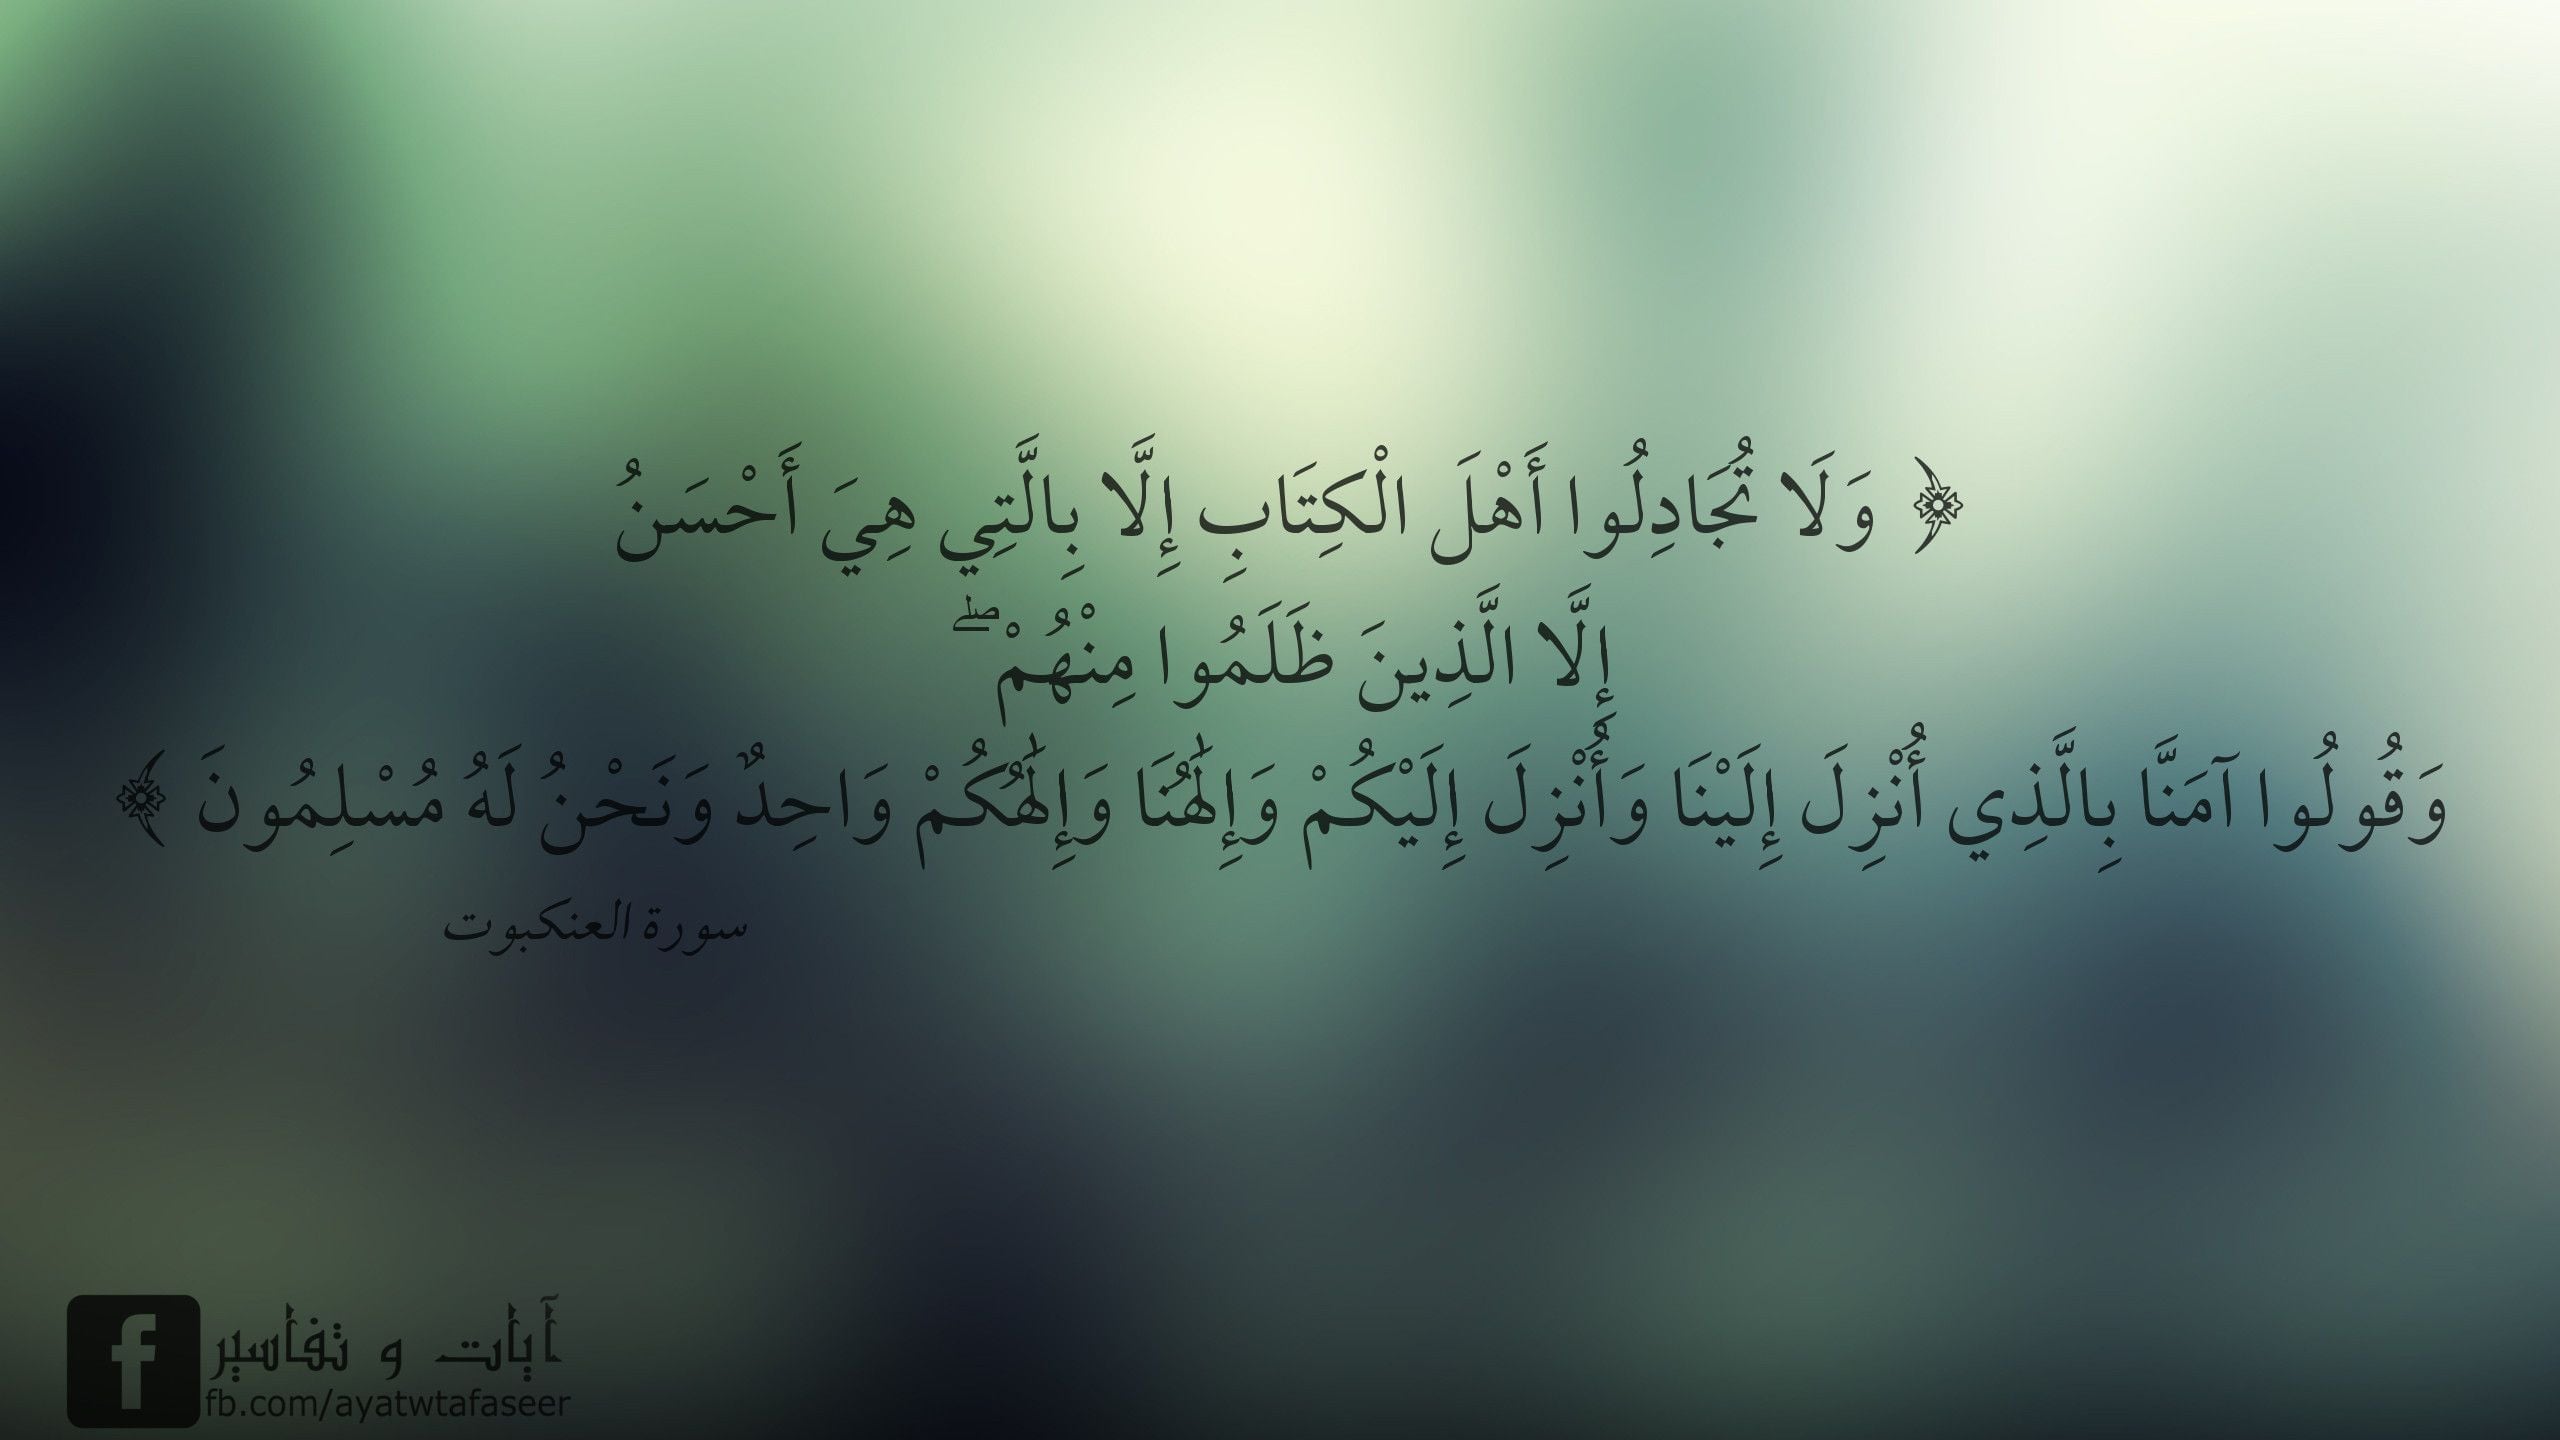 ﴿ وَلَا تُجَادِلُوا أَهْلَ الْكِتَابِ إِلَّا بِالَّتِي هِيَ أَحْسَنُ
إِلَّا الَّذِينَ ظَلَمُوا مِنْهُمْ ۖ
وَقُولُوا آمَنَّا بِالَّذِي أُنْزِلَ إِلَيْنَا وَأُنْزِلَ إِلَيْكُمْ وَإِلَٰهُنَا وَإِلَٰهُكُمْ وَاحِدٌ وَنَحْنُ لَهُ مُسْلِمُونَ ﴾
سورة العنكبوت
آيات و تفاسير
fb.com/ayatwtafaseer